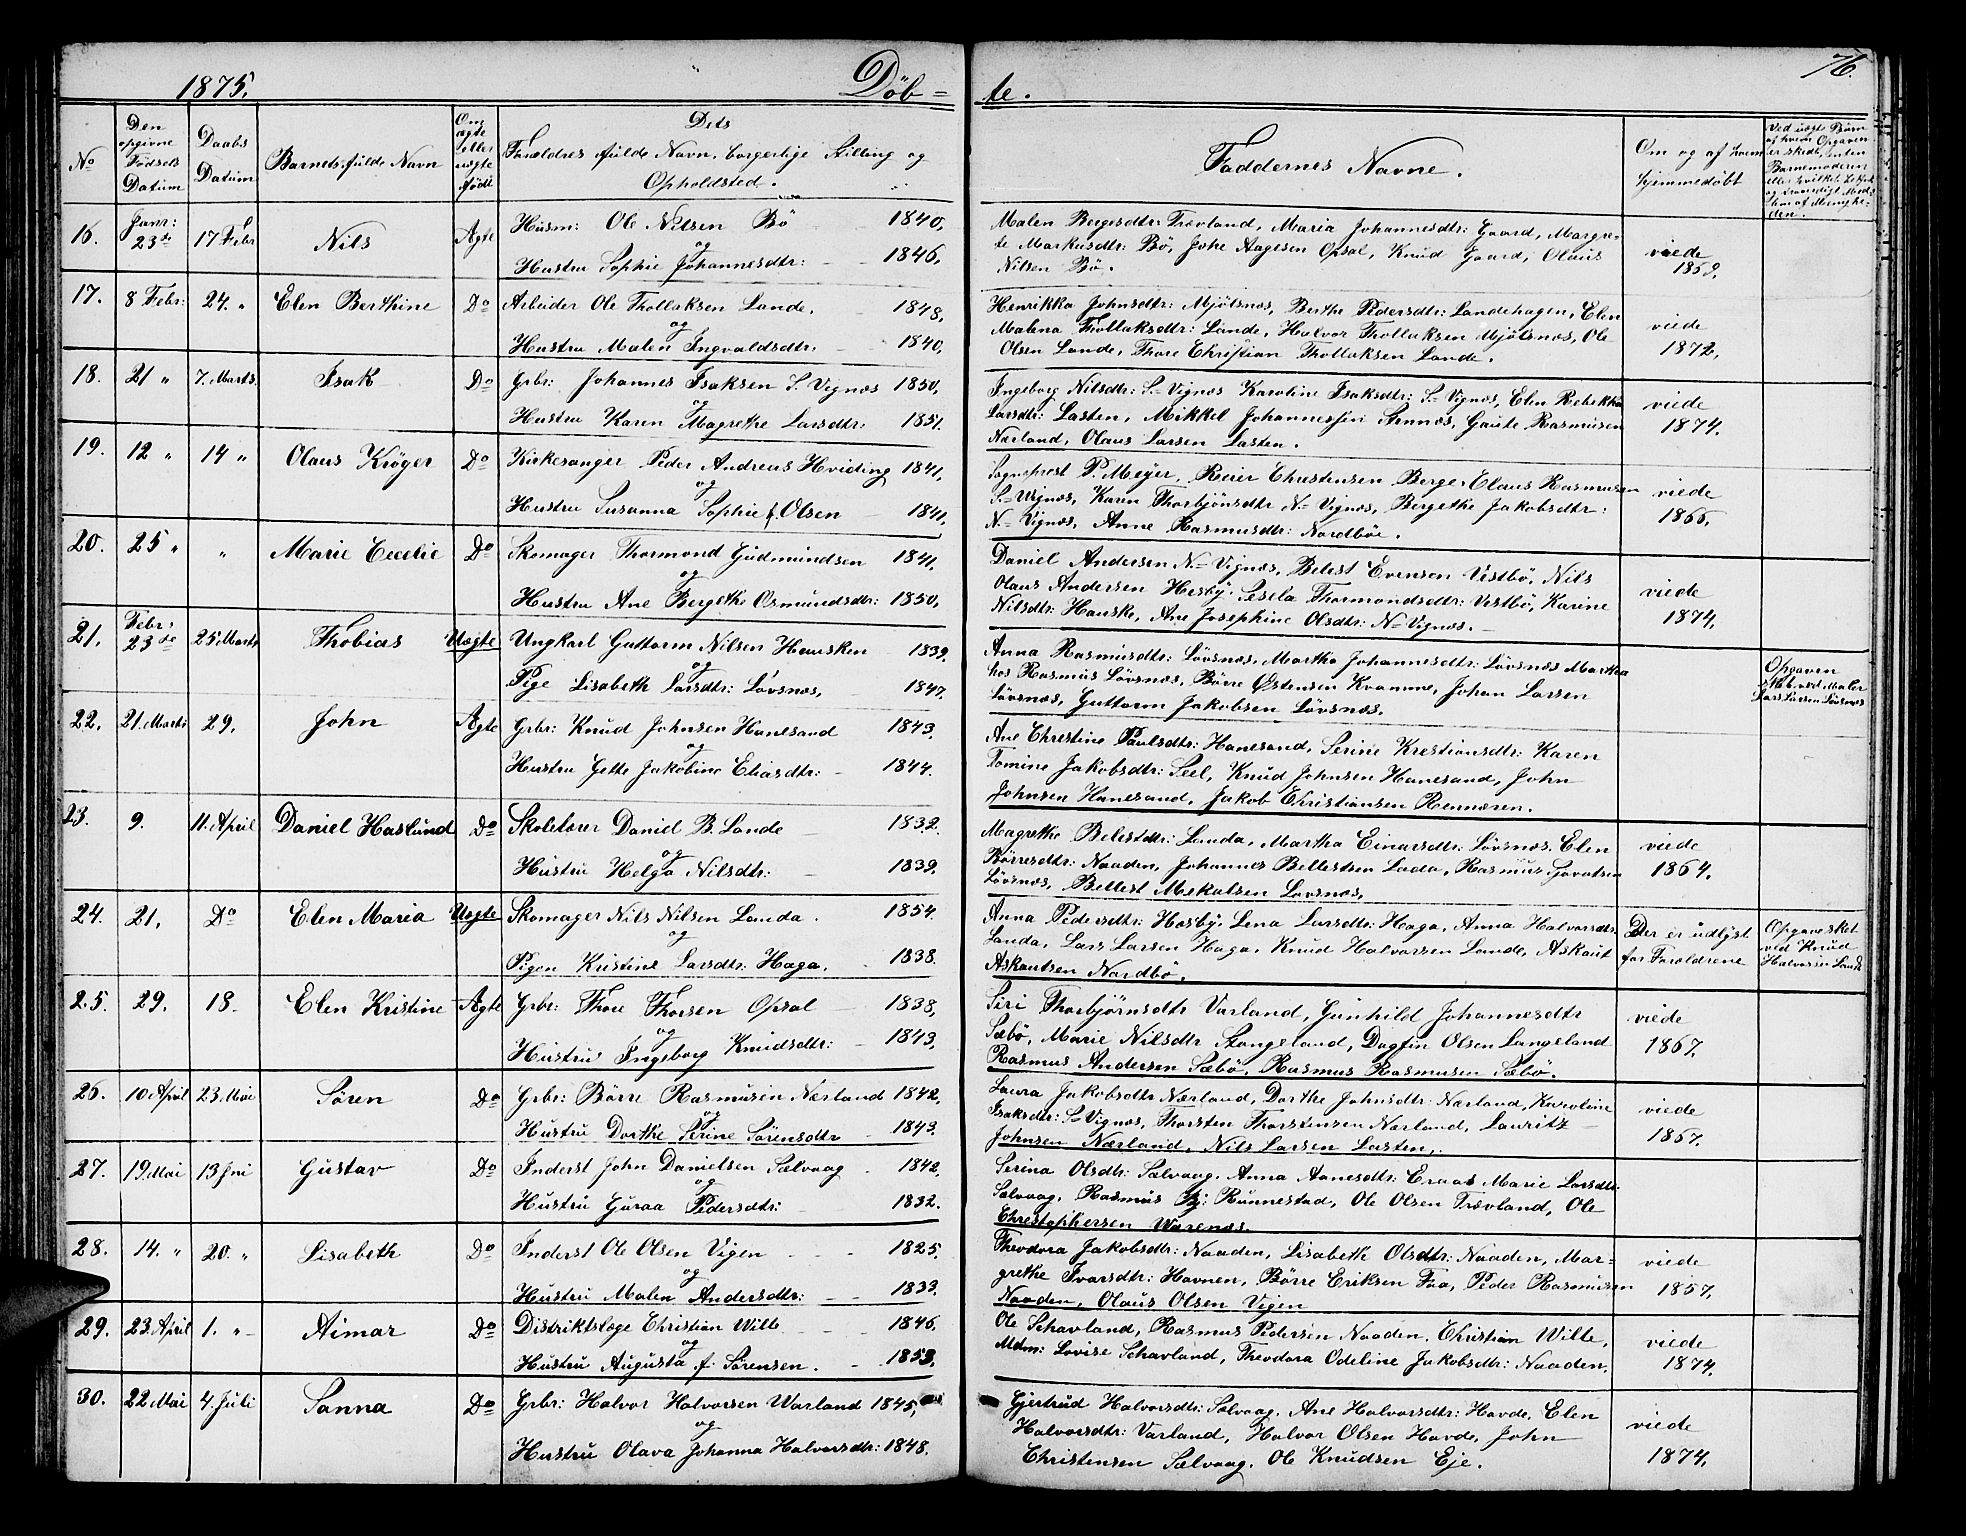 1875.
Döb-
te.
76.
No
Den opgivne Fødsels Datum
Daabs Datum
Barnets fulde Navn
Om ægte eller uægte født
Dets
Forældres fulde Navn, borgerlige Stilling og
Opholdsted.
Faddernes Navne.
Om og af hvem
hjemmedøbt
16. Janr: 23de 17 Febr Nils Ægte Husm: Ole Nilsen Bö 1840,
og
Hustru Sophie Johannesdtr: 1846,
Malen Bergesdtr: Trovland, Maria Johannesdtr: Gaard, Margre-
te Markusdtr: Bö, Johe Aagesen Opsal, Knud Gaard, Olaus
Nilsen Bö.
viede
17. 8 Febr: 24. " Elen Berthine Do Arbeider Ole Thollaksen Lande, 1848,
og
Hustru Malen Ingvaldsdtr: 1840,
Henrikka Johnsdtr: Mjölsnæs, Berthe Pedersdtr: Landehagen, Elen
Malena Thollaksdtr: Lande, Halvor Thollaksen Mjölsnæs, Ole
Olsen Lande, Thore Christian Thollaksen Lande.
viede
1872,
18. 21 " 7. Marts. Isak Do Grbr: Johannes Isaksen S. Vignæs 1850,
og
Hustru Karen Magrethe Larsdtr: 1851.
Ingeborg Nilsdtr: S. Vignæs Karoline Isaksdtr: S. Vignæs, Elen Rebekka
Larsdtr: Lasten, Mikkel Johannessen Aennæs, Gaute Rasmusen
Nærland, Olaus Larsen Lasten.
viede
1874.
19. 12 " 14 " Olaus Kröger Do Kirkesanger Peder Andreas Hviding 1841,
og
Hustru Susanna Sophie f. Olsen 1841,
Sogneprest P. Meyer, Reier Christensen Berge, Claus Rasmusen
S. Vignæs, Karen Thorbjönsdtr N. Vignæs, Bergethe Jakobsdtr:
N. Vignæs, Anne Rasmusdtr: Nordböe.
viede
1866,
20. 25 " " Marie Cecelie Do Skomager Thormond Gudmundsen 1841.
og
Hustru Ane Bergethe Osmundsdtr: 1850,
Daniel Andersen N. Vignæs, Belest Evensen Vestbö, Nils
Olaus Andersen Hesby, Sesela Thormondsdtr: Vestbö, Karine
Nilsdtr: Hauske, Ane Josephine Olsdtr: N. Vignæs.
viede
1874,
21. Febr: 23de 25 Marts Thobias Uægte Ungkarl Guttorm Nilsen Hausken 1839.
og
Pige Lisabeth Larsdtr: Lövsnæs, 1847.
Anna Rasmusdtr: Lövsnæs, Martha Johannesdtr: Lövsnæs Martha
hos Rasmus Lövsnæs, Börre Østensen Kvamme, Johan Larsen
Lövsnæs, Guttorm Jakobsen Lövsnæs.
Opgaven
Lars Larsen Lövsnæs
22. 21. Marts 29. John Ægte Grbr: Knud Johnsen Hanesand 1843.
og
Hustru Gette Jakobine Eliasdtr: 1844.
Ane Christine Paulsdtr: Hanesand, Serine Krestiansdtr: Karen
Tomine Jakobsdtr: Seel, Knud Johnsen Hanesand, John
Johnsen Hanesand, Jakob Christiansen Rennaren.
23. 9. 11. April Daniel Haslund Do Skolelærer Daniel B. Lande 1832.
og
Hustru Helga Nilsdtr: 1839.
Magrethe Belestdtr: Landa, Martha Einarsdtr: Lövsnæs, Elen
Börresdtr: Naaden, Johannes Bellestsen Lada, Rasmus Govatsen
Lövsnæs, Bellest Mikalsen Lövsnæs,
viede
1864.
24. 21, Do Elen Maria Uægte Skomager Nils Nilsen Landa. 1854.
og
Pigen Kristine Larsdtr: Haga. 1838.
Anna Pedersdtr: Hæsby, Lena Larsdtr: Haga, Anna Halvorsdtr:
Landa, Lars Larsen Haga, Knud Halvorsen Lande, Askaut
Askautsen Nordbö.
Der er udlyst
for Foroldrene
Opgave sket
ved Knud
Halvorsen Lande
25. 29. 18. Elen Kristine Ægte Grbr: Thore Thorsen Opsal 1838,
og
Hustrus Ingeborg Knudsdtr: 1843,
Siri Thorbjörnsdtr Varland, Gunhild Johannesdtr
Sæbö, Marie Nilsdtr Stangeland, Dagfin Olsen Langeland
Rasmus Andersen Sæbö, Rasmus Rasmusen Sæbö.
viede
1867.
26. 10 April 23 Mai Sören Do Grbr: Börre Rasmusen Nærland 1842,
og
Hustru Dorthe Serine Sörensdtr 1843.
Laura Jakobsdtr Nærland, Dorthe Johnsdtr: Nærland, Karoline
Isaksdtr: S. Vignæs, Thorsten Thorstensen Nærland, Lauritz
Johnsen Nærland, Nils Larsen Lasten.
viede
1867.
27. 19. Mai 13 Juni Gustav Do Inderst John Danielsen Salvaag 1842,
og
Hustru Guraa Pedersdtr: 1832.
Serina Olsdtr: Salvaag, Anna Aanesdtr: Eraas Marie Larsdtr:
Salvaag, Rasmus Runnestad, Ole Olsen Trævland, Ole
Christophersen Warenæs.
28. 14. " 20. " Lisabeth Do Inderst Ole Olsen Vigen 1825.
og
Hustru Malen Andersdtr: 1833.
Theodora Jakobsdtr: Naaden, Lisabeth Olsdtr: Naaden, Mar-
grethe Ivarsdtr: Havnen, Börre Eriksen Faa, Peder Rasmusen
Naaden, Olaus Olsen Vigen
viede
1857.
29. 23 April 1. " Aimar Do Distriktslæge Christian Wille 1846.
og
Hustru Augusta f. Sörensen. 1853.
Ole Schavland, Rasmus Pedersen Naaden, Christian Wille,
Mdm: Lovise Schavland, Theodora Odeline Jakobsdtr: Naaden.
viede
1874.
30. 22 Mai 4. Juli Sanna Do Grbr: Halvor Halvorsen Warland 1845,
og
Hustru Olava Johanna Halvorsdtr: 1848.
Gjertrud Halvorsdtr: Salvaag, Ane Halvorsdtr: Havde, Elen
Halvorsdtr: Varland, Halvor Olsen Havde, John
Christensen Salvaag, Ole Knudsen Eje.
viede
1874,